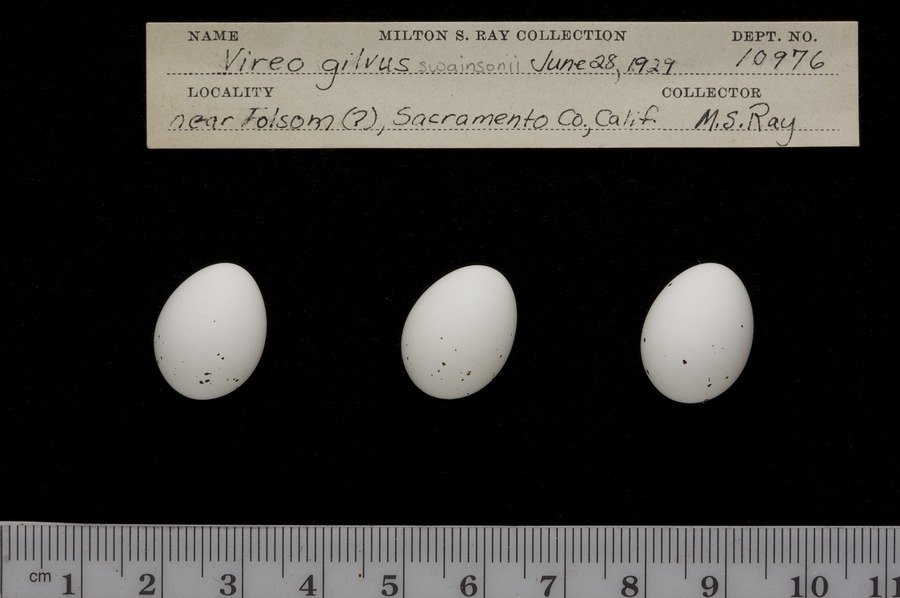 NAME MILTON S. RAY COLLECTION DEPT. NO.
Vireo gilvus swainsonii June 28, 1929 10976
LOCALITY COLLECTOR
near Folsom (?), Sacramento Co., Calif. M.S. Ray
cm 1 2 3 4 5 6 7 8 9 10 11